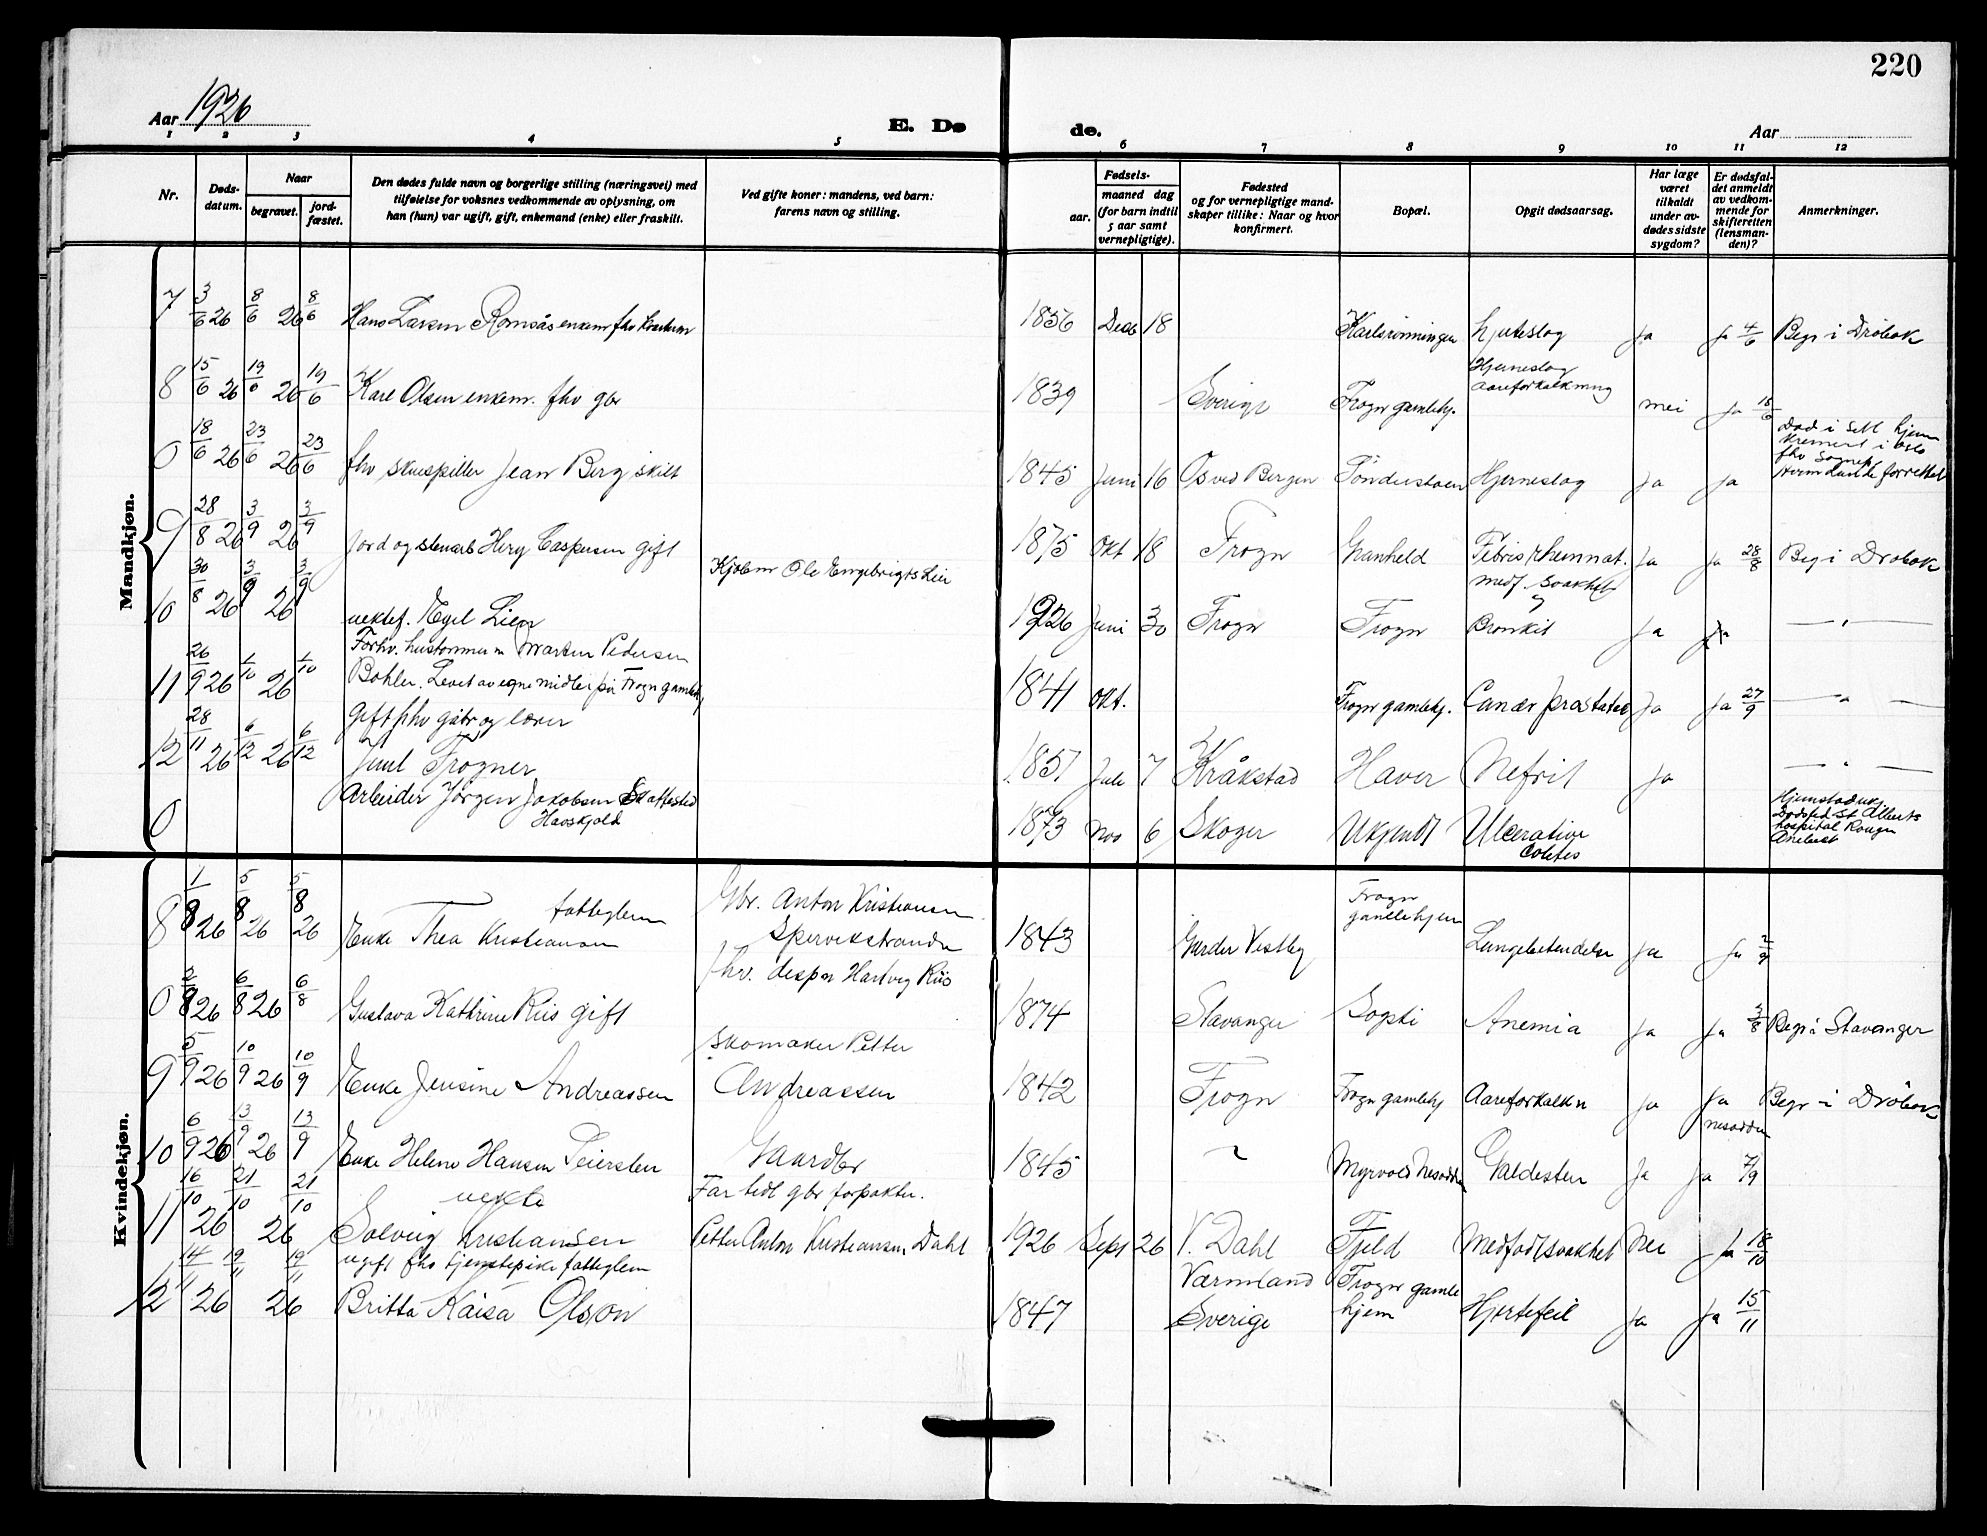 220
Aar 1926
E. Dø de.
Aar
1 2 3 4 5 6 7 8 9 10 11 12
Nr.
Døds-
datum.
Naar
begravet.
jord-
fæstet.
Den dødes fulde navn og borgerlige stilling (næringsvei) med
tilføielse for voksnes vedkommende av oplysning, om
han (hun) var ugift, gift, enkemand (enke) eller fraskilt.
Ved gifte koner: mandens, ved barn:
farens navn og stilling.
Fødsels-
aar.
maaned dag
(for barn indtil
5 aar samt
vernepligtige).
Fødested
og for vernepligtige mand-
skaper tillike: Naar og hvor
konfirmert.
Bopæl.
Opgit dødsaarsag.
Har læge
været
tilkaldt
under av-
dødes sidste
sygdom?
Er dødsfal-
det anmeldt
av vedkom-
mende for
skifteretten
(lensman-
den)?
Anmerkninger.
Mandkjøn.
7 3/6 26 8/6 26 8/6 Hans Larsen Romsås enkem fhv 1856 Desb 18 Karlsrønningen hjerteslag Ja Ja 4/6 Begr i Drøbak
8 15/6 26 19/6 26 19/6 Karl Olsen enkem. fhv gbr 1839 Sverige Frogn gamlehj. Hjerneslag
aareforkalkning nei Ja 18/6
0 18/6 26 23/6 26 23/6 fhv skuespiller Jean Berg skilt 1845 Juni 16 Os ved Bergen Hjerneslag Ja Ja Død i sitt hjem
kremert i Oslo
fhv Sognepr
forrettet
9 28/8 26 3/9 26 3/9 Jord og stenarb Caspersen gift 1875 Okt 18 Frogn Granheld Febris rheumat. Ja Ja 28/8 Beg i Drøbak
Kjøbm Ole Engebrigts Lier
10 30/8 26 3/9 26 3/9 uektef. Egil Lien 1926 Juni 30 Frogn Frogn medf. svakhet
?
Bronkit Ja Ja — " —
Forhv. hustømmerm Martin Pedersen
11 26/9 26 1/10 26 1/10 Bohler. Levet av egne midler på Frogn gamlehj 1841 Okt. Frogn gamlehj. Cancer prostatae Ja Ja 27/9 — " —
Gift fhv gbr og lærer
12 28/11 26 6/12 26 6/12 Juul Frogner 1857 Juli 7 Kråkstad Haver Nefrit Ja — " —
0 Arbeider Jørgen Jakobsen
Havskjold 1873 Nov 6 Skoger Ukjendt Ulcerative
Colites Dødsted St Alberts
hospital
Kvindekjøn.
8 1/8 26 5/8 26 5/8 26 fattiglem
Enke Thea Kristiansen Gbr. Anton Kristiansen
Spervikstranda 1843 Garder Vestby Frogn
gamlehjem Lungebetendelse Ja Ja
0 2/8 26 6/8 26 6/8 Gustava Kathrine Riis gift fhv. dispon Hartvig Riis 1874 Stavanger Sogsti Anemia Ja Ja 3/8 Begr i Stavanger
9 5/9 26 10/9 26 10/9 Enke Jensine Andreassen Skomaker Petter
Andreassen 1842 Frogn Frogn gamlehj Aareforkalkn Ja Ja Begr i Drøbak
10 6/9 26 13/9 26 13/9 Enke Helene Hansen Teiersten Gaardbr 1845 " Myrvold Nesodden Galdesten Ja Nesodden
Ja 7/9
11 16/10 26 21/10 26 21/10 uekte
Solveig Kristiansen Far tidl gbr forpakter.
Petter Anton Kristiansen Dahl 1926 Sept 26 V. Dahl Fjeld Medfødt svakhet Nei Ja 18/10
12 14/11 26 19/11 26 19/11 ugift fhv tjenestepike fattiglem
Britta Kaisa Olsson 1847 Värmland
Sverige Frogn gamle
hjem Hjertefeil Ja Ja 15/11